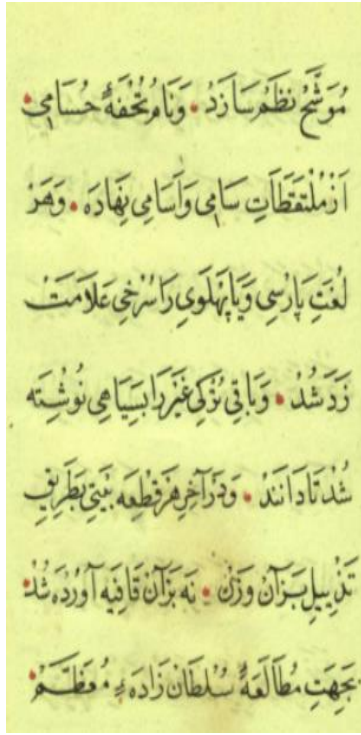 مُوَشَّحِ نَظْم سَازَدْ • وَنَامْ تُحْفَهٔ حُسَامِی •
اَزْ مُلْتَقَطَاتِ سَامِی وَاَسَامِی نِهَادَه • وَهَرْ
لُغَتِ پَارْسِی وَیَا پَهْلَوِی رَا سُرْخِی عَلَامَتْ
زَدَ شُدْ • وَبَاقِی نُوشِتَه
شُدْ تَا دَانَنْد • وَدَرْ آخِرِ هَرْ قِطْعَه بَیْتِی بَطَرِیقِ
تَذْیِیلِ بَرْ آنْ وَزْنْ • نَه بَرْ آنْ قَافِیَه آوُرْدَه شُدْ •
بَجِهَتِ مُطَالَعَهٔ سُلْطَانْ زَادَهٔ مُعَظَّمْ •